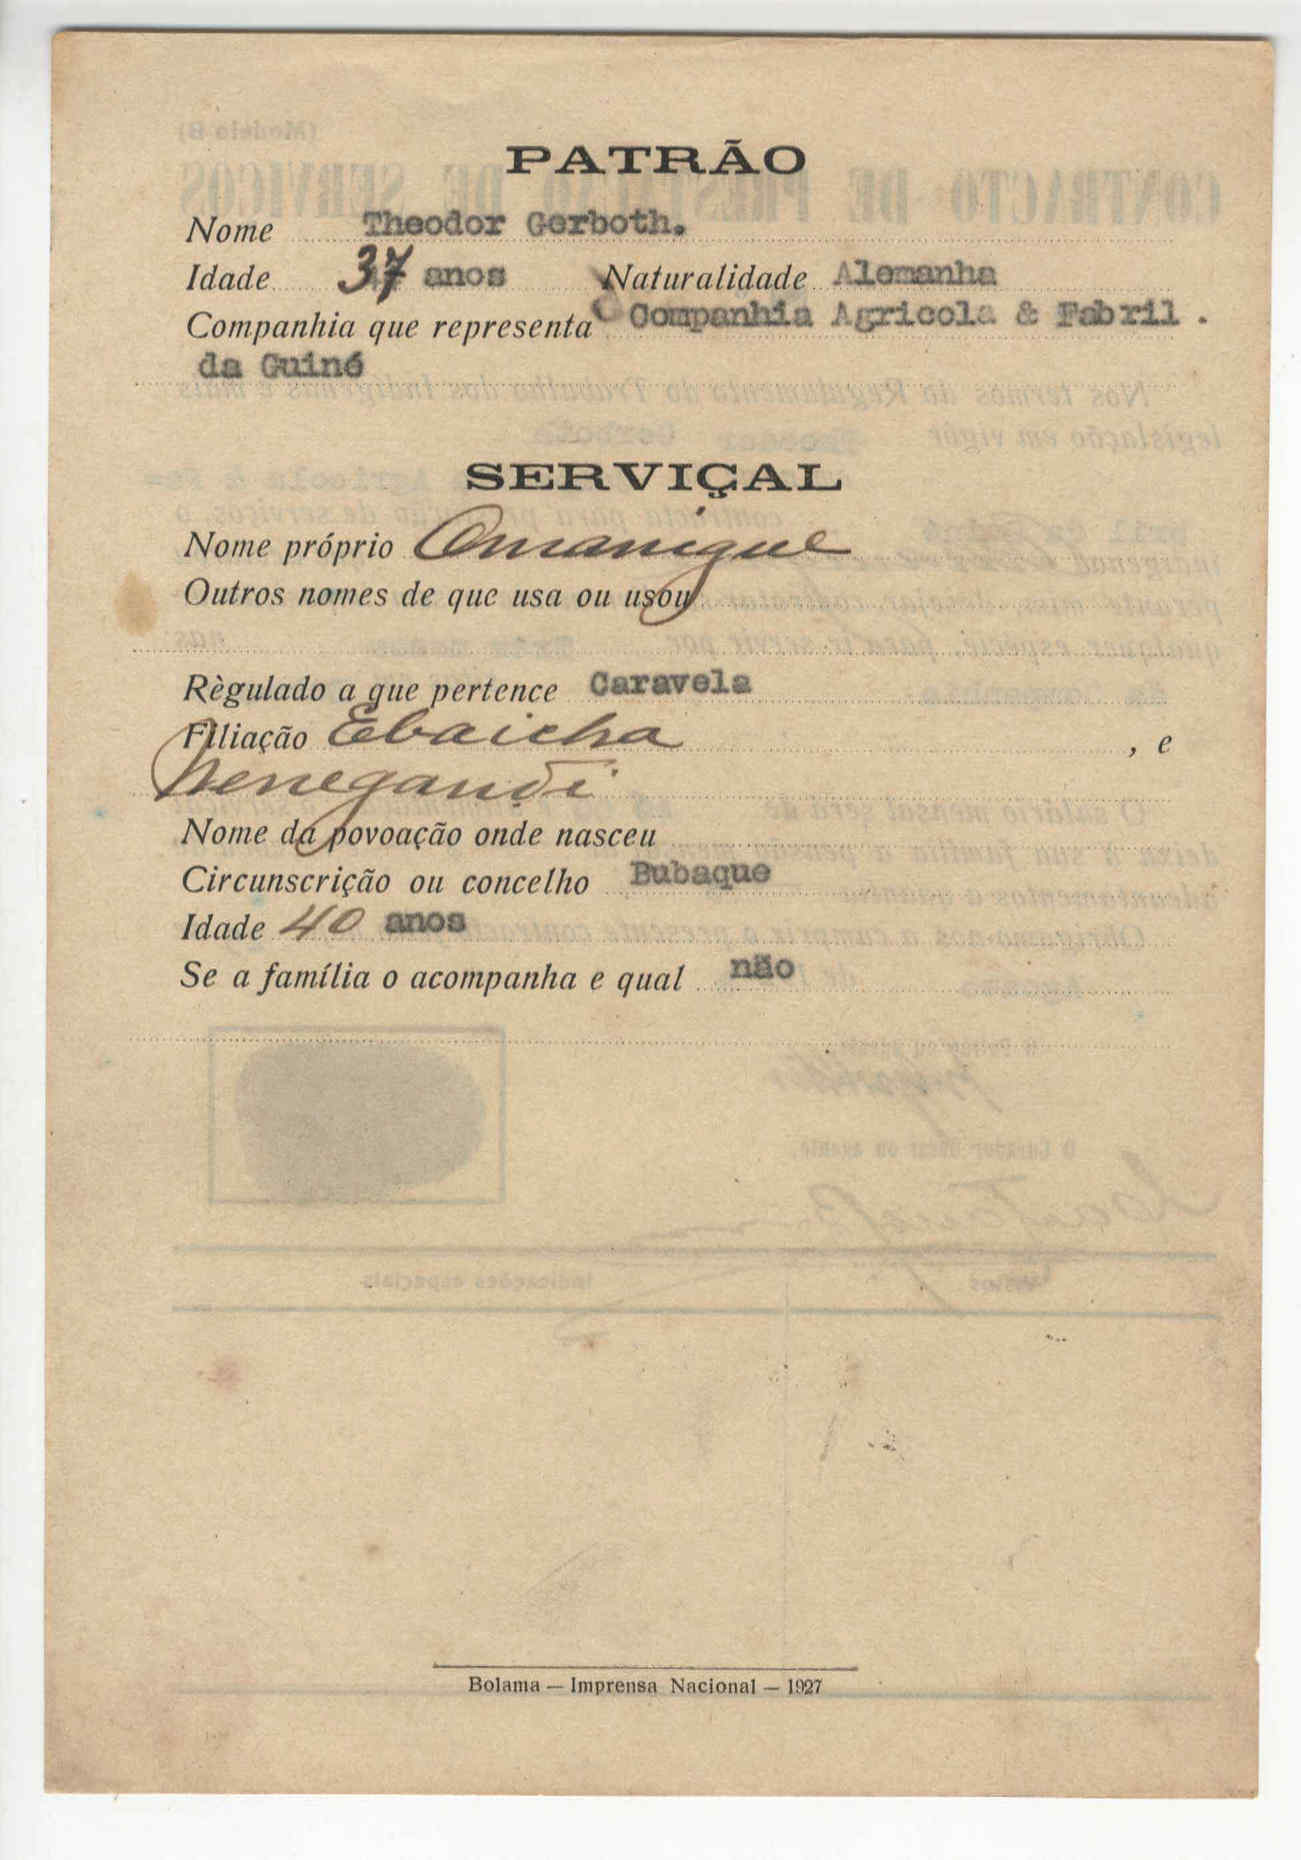 PATRÃO
Nome Theodor Gerboth.
Idade 37 anos Naturalidade Alemanha
Companhia que representa Companhia Agricola & Fabril .
da Guiné
SERVIÇAL
Nome próprio Omanigue
Outros nomes de que usa ou usou
Règulado a que pertence Caravela
Filiação Ebaicha , e
Nenegandi
Nome da povoação onde nasceu
Circunscrição ou concelho Bubaque
Idade 40 anos
Se a família o acompanha e qual não
Bolama — Imprensa Nacional — 1927